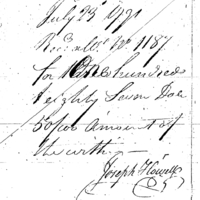 July 23d 1791
Rec'd No 1187
for hundred
& eighty Seven Dol
50/100 Amount of
the with
Joseph Howell